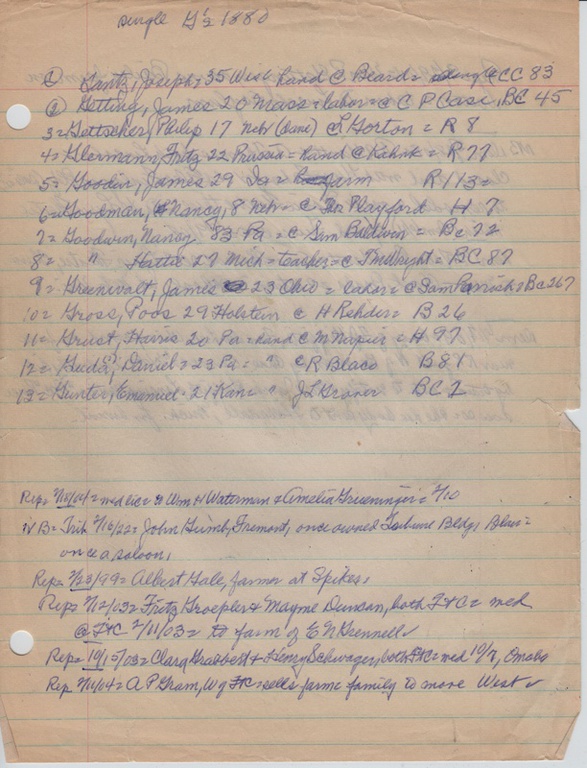 single G's 1880
1) Gantz, Joseph = 35 West hand C Beard = CC 83
2) Getting, James 20 Mass = labor = c C P Case, BC 45
3 = Gottscher, Philip 17 Neb (Dane) c L Gorton = R 8
4 = Glermann, Fritz 22 Prussia = hand C Kahnk = R 77
5 = Goodin, James 29 Ia = farm R 113 =
6 = Goodman, Nancy, 8 Neb = c Playford H 7
7 = Goodwin, Nancy 83 Pa = c Sim Baldwin = BC 72
8 = " Hattie 27 Mich = teacher = c Wright = BC 87
9 = Greenevalt, James 23 Ohio = labor = c Sam Parrish = BC 267
10 = Gross, 29 Holstein c H Rehder = B 26
11 = Grust, Harris 20 Pa = hand C M Napier = H 97
12 = Guda, Daniel = 23 Pa = " c R Blaco B 87
13 = Gunter, Emanuel = 21 Kan = " J L Grover BC 2
Rep = lic = Wm H Waterman & Amelia Grueninger = 2/10
N B = Trib 2/16/22 = John Gumb, Fremont, once owned Tribune Bldg, Blair =
once a saloon,
Rep = 2/23/99 = Albert Gale, farmer at Spikes,
Rep = 2/12/03 = Fritz Groepler & Mayme Duncan, both Ft C = med
@ Ft C 2/11/03 = to farm of E N Grennell
Rep = 10/15/03 = Clara Grabbert & Henry Schwager, both Ft C = med 10/7, Omaha
Rep = A P Gram, W of Ft C = sells farm = family to move West